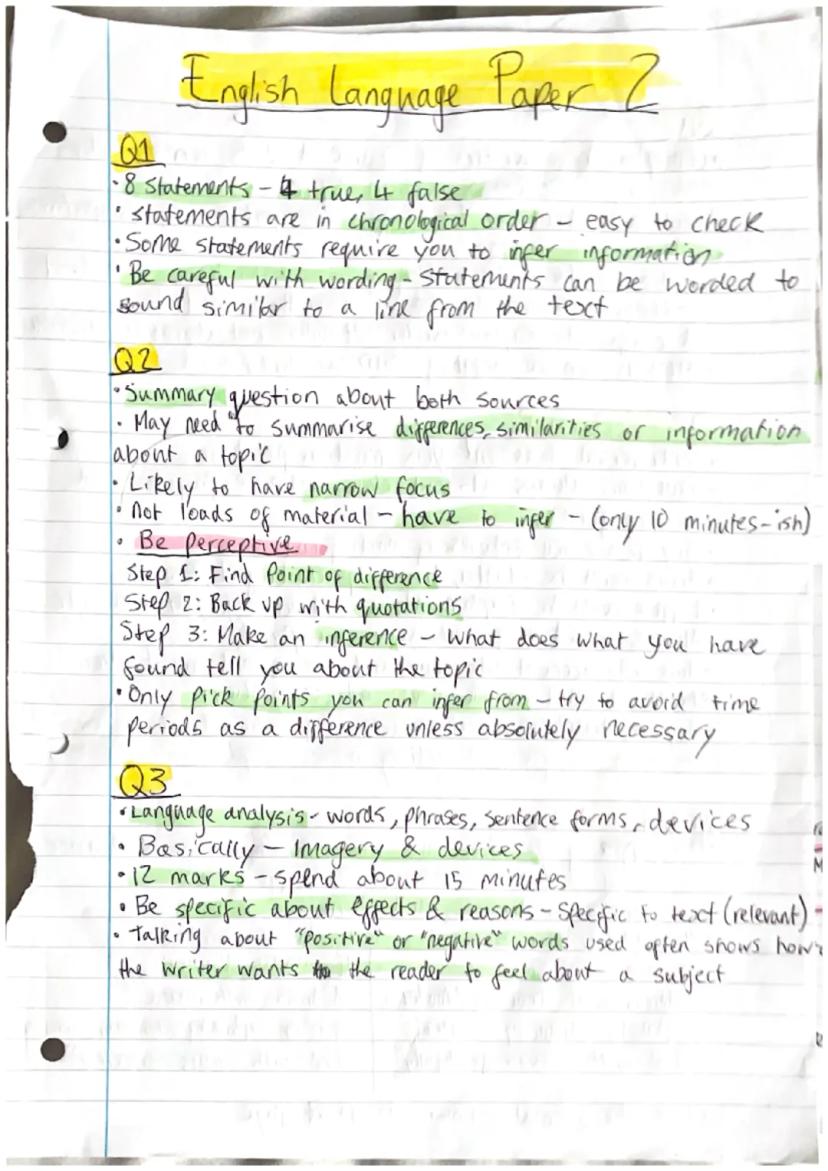 English Language Paper 2
Q1
· 8 statements – 4 true, 4 false
· statements are in chronological order – easy to check
· Some statements require you to infer information
· Be careful with wording – statements can be worded to
sound similar to a line from the text
Q2
· Summary question about both sources
· May need to summarise differences, similarities or information
about a topic
· Likely to have narrow focus
· Not loads of material – have to infer – (only 10 minutes-ish)
· Be perceptive
Step 1: Find Point of difference
Step 2: Back up with quotations
Step 3: Make an inference – what does what you have
found tell you about the topic
· Only pick points you can infer from – try to avoid time
periods as a difference unless absolutely necessary
Q3
· Language analysis – words, phrases, sentence forms, devices
· Basically – Imagery & devices
· 12 marks – spend about 15 minutes
· Be specific about effects & reasons – specific to text (relevant)
· Talking about "positive" or "negative" words used often shows how
the writer wants the reader to feel about a subject